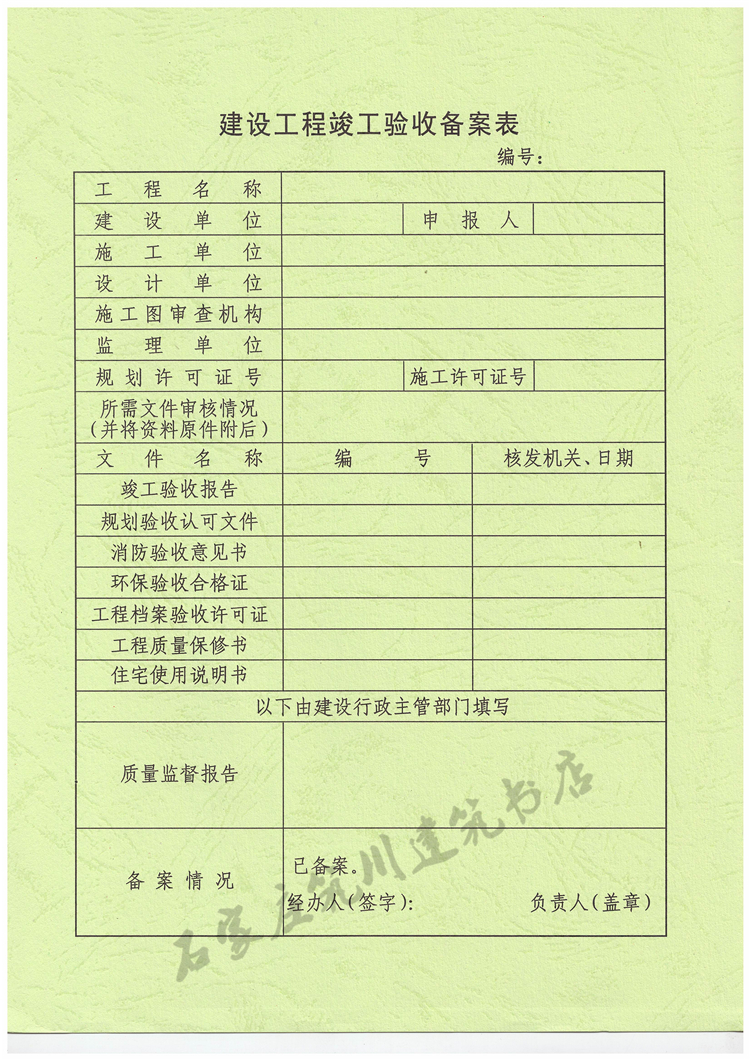 建设工程竣工验收备案表
编号：
工程名称
建设单位 申报人
施工单位
设计单位
施工图审查机构
监理单位
规划许可证号 施工许可证号
所需文件审核情况
（并将资料原件附后）
文件名称 编号 核发机关、日期
竣工验收报告
规划验收认可文件
消防验收意见书
环保验收合格证
工程档案验收许可证
工程质量保修书
住宅使用说明书
以下由建设行政主管部门填写
质量监督报告
备案情况
已备案。
经办人（签字）： 负责人（盖章）
石家庄筑川建筑书店